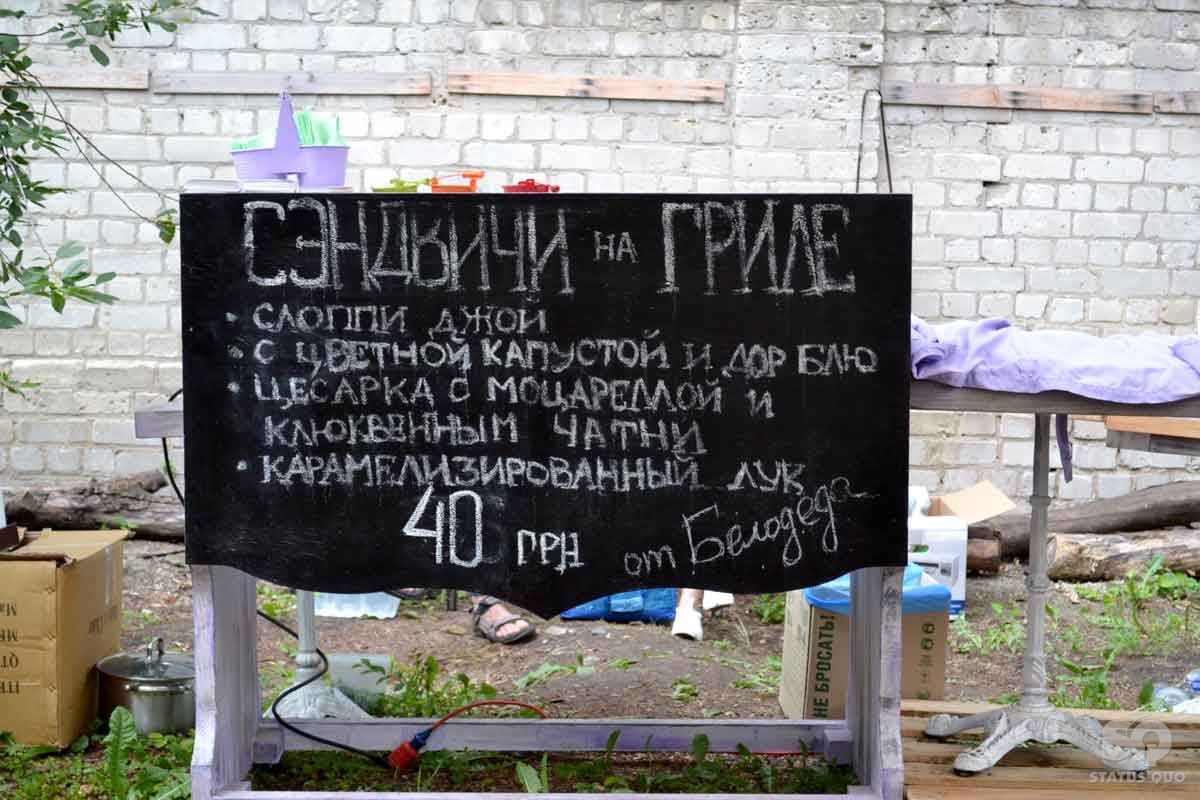 СЭНДВИЧИ НА ГРИЛЕ
• СЛОППИ ДЖОИ
• С ЦВЕТНОЙ КАПУСТОЙ И ДОР БЛЮ
• ЦЕСАРКА С МОЦАРЕЛЛОЙ И
КЛЮКВЕННЫМ ЧАТНИ
• КАРАМЕЛИЗИРОВАННЫЙ ЛУК
40 ГРН от Белодеда
НЕ БРОСАТЬ!
SQ
STATUS QUO